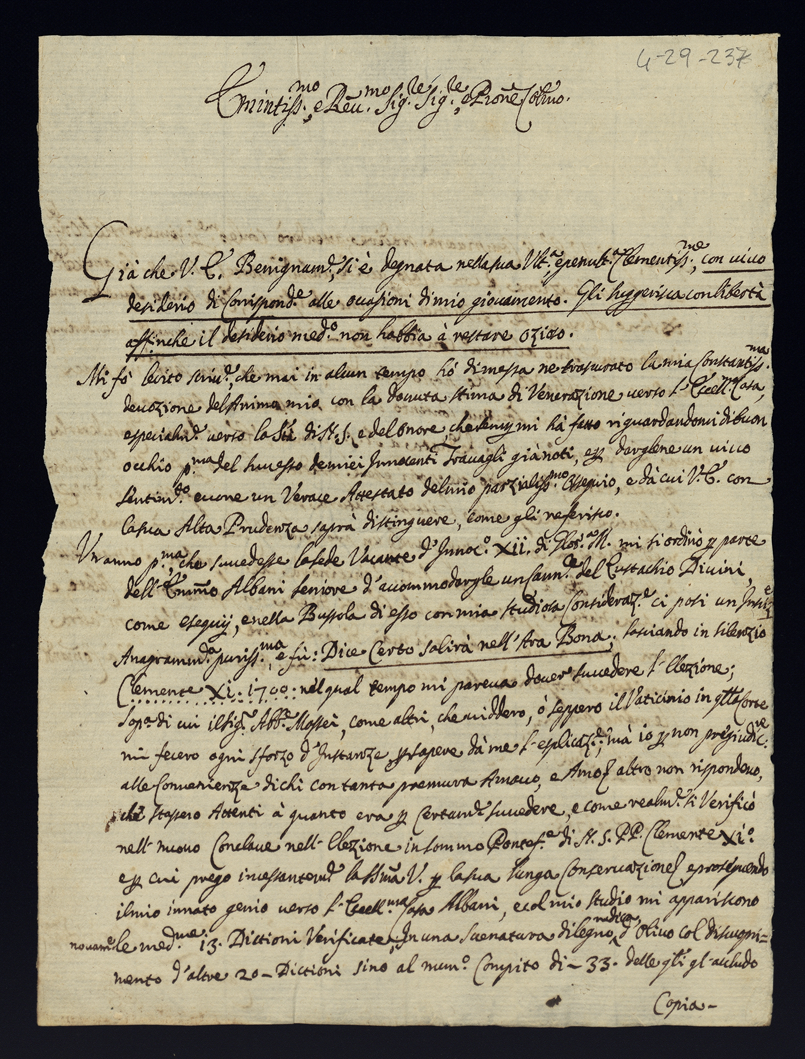 4-29-237
Emintiss.mo, e Reu.mo Sig.re Sig.re, e Prōne Colmo.
Già che V. E. Benignam.e, si è degnata nella sua Ult.a e penult.a Clementiss.me, con viuo
desiderio di Corrispond.e alle ouasioni di mio giouamento. Gli suggerisca con libertà
affinche il desiderio med.o non habbia à restare ozioo.
Mi fò lecito scriu.e, che mai in alcun tempo hò dimessa ne trascurato la mia Constantiss.ma
deuozione dell'Animo mio con la douuta stima di Venerazione uerso l'Ecell.ma Casa,
especialm.e uerso la S.tà di N. S. e del onore, che mi hà fatto riguardandomi di buon
occhio p.ma del successo de miei Innocenti Trauagli già noti, e p darglene un uiuo
sentim.to euone un Verace Attestato del mio parzialiss.mo Ossequio, e dà cui V. E. con
la sua Alta Prudenza saprà distinguere, come gli referisco.
Un anno p.ma, che succedesse la Sede Vacante d'Innoc.o XII. di Glor.a M. mi si ordinò p parte
dell'Emm̄o Albani seniore d'accommodargle un Cann.le del Eustachio Diuini,
come eseguij, e nella Bussola di esso con mia studiosa Consideraz.e ci posi un
Anagramm.a puriss.ma, e fù: Dice Certo salirà nell'Ara Bona; lasciando in silenzio
Clemente XI. 1700. nel qual tempo mi pareua douer succedere l'Elezione;
sop.a di cui il Sig.r Abb.e Mossei, come altri, che uiddero, ò seppero il Vaticinio in q̄tta Corte
mi fecero ogni sforzo d'Instanze p sapere dà me l'esplicaz.e, mà io p non pregiudic.re
alle Conuenienze di chi con tanta premura Amauo, e Amo altro non rispondeuo,
che stassero Attenti à quanto era p certam.e succedere, e come realm.e si Verificò
nell nuouo Conclaue nell'Elezione in sommo Pontef.e di N. S. PP. Clemente XI.o
e p cui prego incessantem.e la SSma V. p la sua lunga Conseruazione, e proseguendo
il mio innato genio uerso l'Ecell.ma Casa Albani, e col mio studio mi appariscono
nouam.e le med.me 13. Dictioni Verificate, In una suenatura di legno, radica d'oliuo col discupri=
mento d'altre 20- Dictioni sino al num.o Compito di - 33. delle gli gl'accludo
Copia-